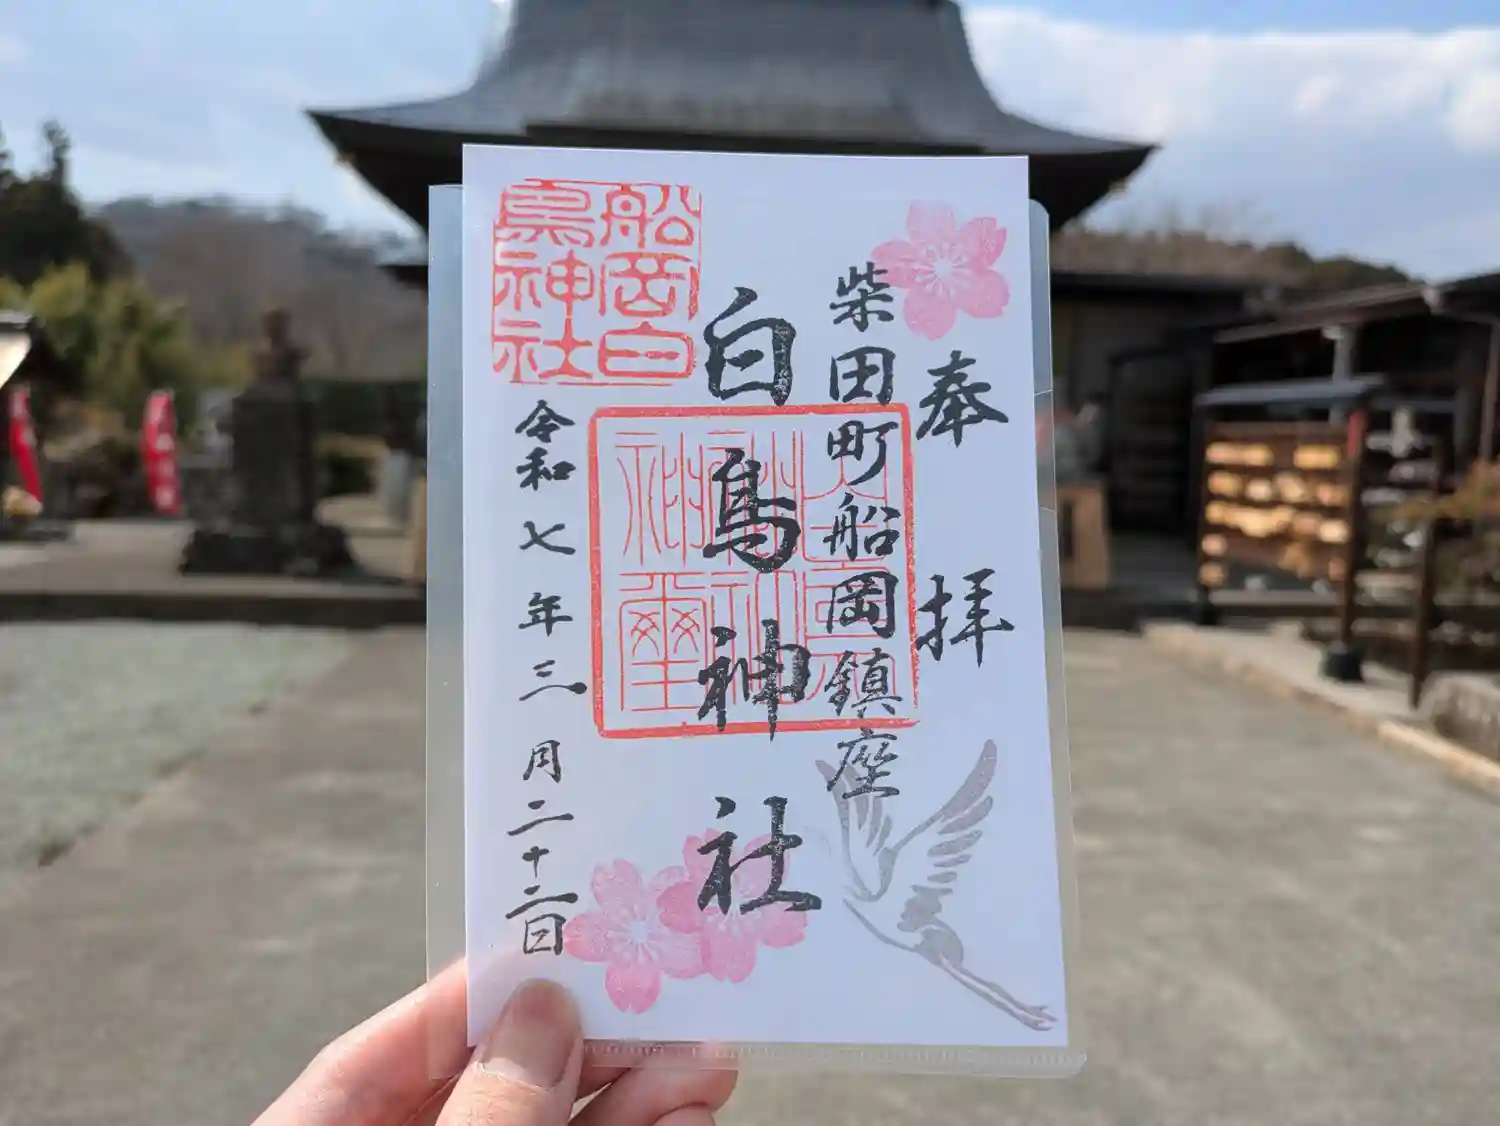 奉拝
柴田町船岡鎮座
白鳥神社
令和七年三月二十二日
船岡白
鳥神社